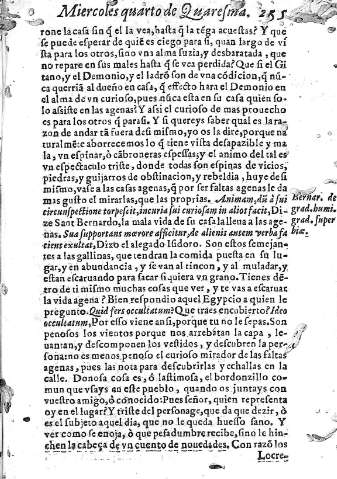 Miercoles quarto de Quaresma. 255
rone la casa sin q̃ el la vea, hasta q̃ la tẽga acuestas? Y que
se puede esperar de quiẽ es ciego para si, quan largo de vi
sta para los otros, sino vna alma suzia, y desbaratada, que
no repare en sus males hasta q̃ se vea perdida? Que si el Gi
tano, y el Demonio, y el ladrõ son de vna cõdicion, q̃ nũ-
ca querriã al dueño en casa, q̃ effecto hara el Demonio en
el alma de vn curioso, pues nũca esta en su casa quien so-
lo assiste en las agenas? Y assi el curioso de mas prouecho
es para los otros q̃ para si. Y si quereys saber qual es la ra-
zon de andar tã fuera de si mismo, yo os la dire, porque na
turalmẽte aborrecemos lo q̃ tiene vista desapazible y ma
la, vn espinar, ò cãbroneras espessas, y el animo del tal es
vn espectaculo triste, donde todas son espinas de vicios,
piedras, y guijarros de obstinacion, y rebeldia, huye de si
mismo, vase a las casas agenas, q̃ por ser faltas agenas le da
mas gusto el mirarlas, que las proprias. Animam, dũ à sui
circunspectione torpescit, incuria sui curiosam in alios facit, Di-
ze Sant Bernardo, la mala vida de su casa lleua a las age-
nas. Sua supportans mœrore afficitur, de alienis autem verba fa
ciens exultat, Dixo el alegado Isidoro. Son estos semejan-
tes a las gallinas, que tendran la comida puesta en su lu-
gar, y en abundancia, y se van al rincon, y al muladar, y
estan escaruando para sacar si quiera vn grano. Tienes dẽ-
tro de ti mismo muchas cosas que ver, y te vas a escuruar
la vida agena? Bien respondio aquel Egypcio a quien le
pregunto. Quid fers occultatum? Que traes encubierto? Ideo
occultatum, Por esso viene ansi, porque tu no le sepas. Son
penosos los vientos porque nos arrebatan la capa, le-
uantan, y descomponen los vestidos, y descubren la per-
sona: no es menos penoso el curioso mirador de las faltas
agenas, pues las nota para descubrirlas y echallas en la
calle. Donosa cosa es, ò lastimosa, el bordonzillo co-
mun que vsays en este pueblo, quando os juntays con
vuestro amigo, ò conocido: Pues señor, quien representa
oy en el lugar? Y triste del personage, que da que dezir, ò
es el subjeto aquel dia, que no le queda huesso sano. Y
ver como se enoja, ò que pesadumbre recibe, sino le hin-
chen la cabeça de vn cuento de nouedades. Con razõ los
Locre-
Bernar. de
grad. humi.
grad. super
biæ.